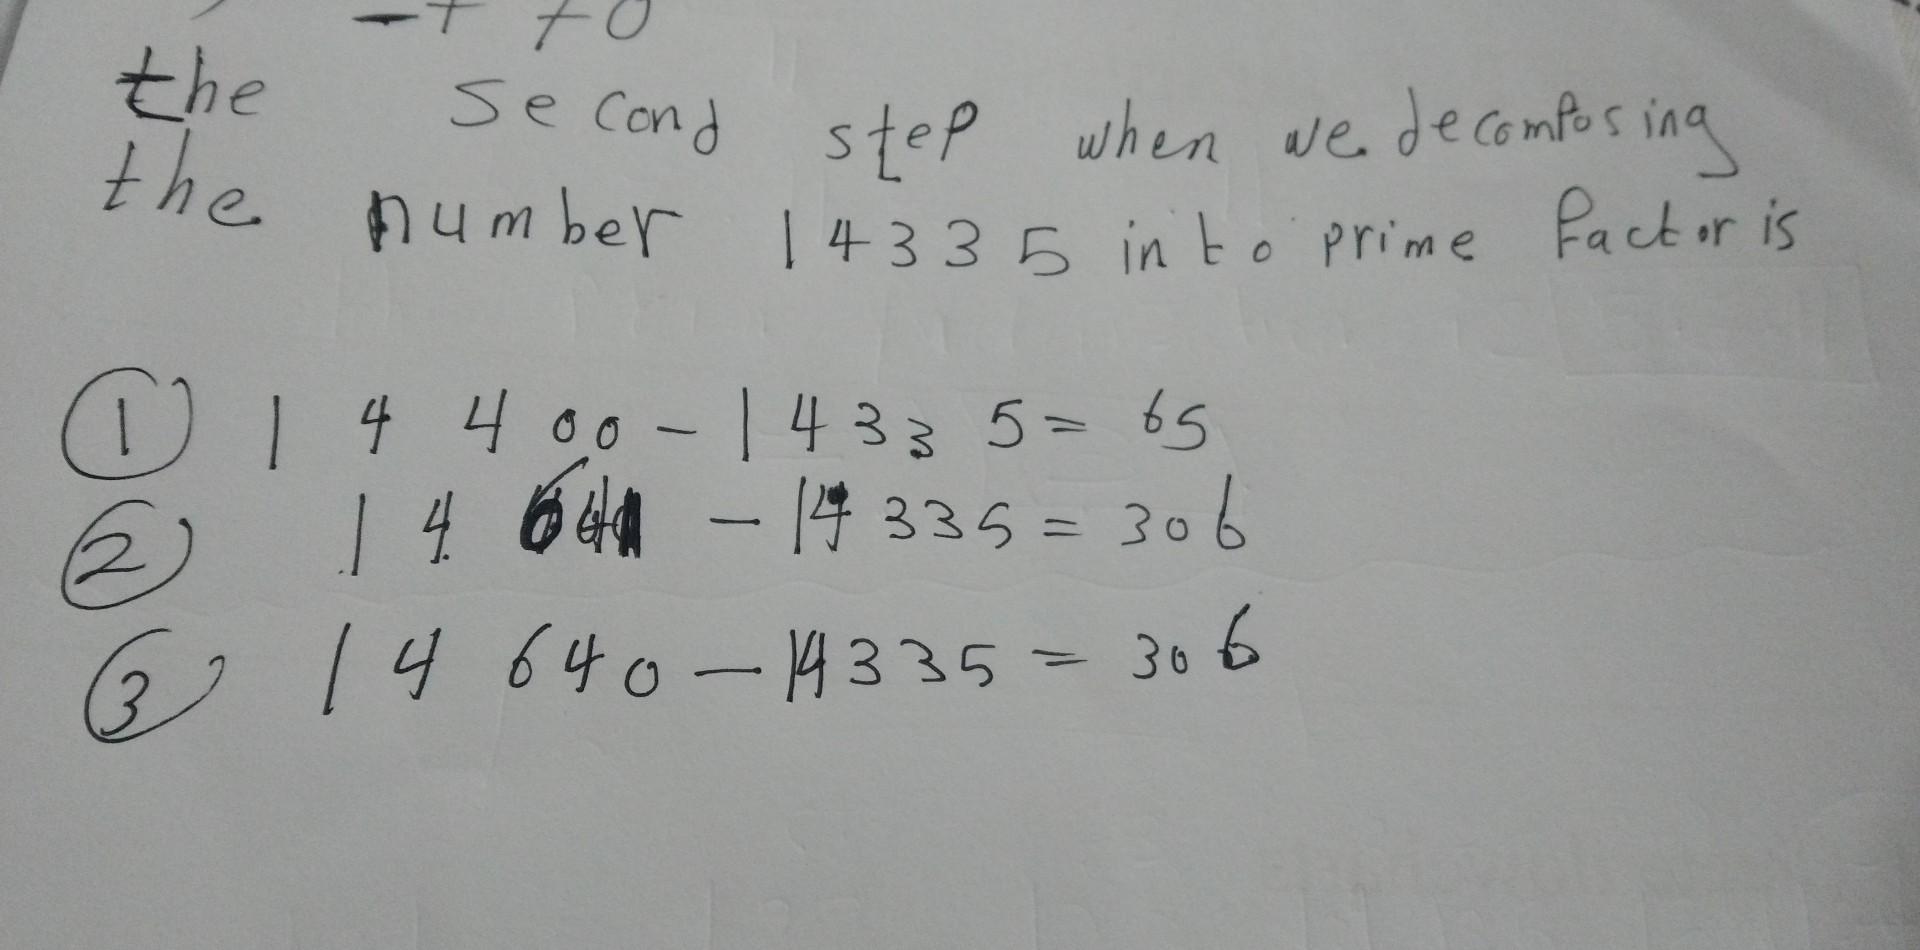 the second step when we decomposing
the number 14335 into prime factor is
① 14400 - 14335 = 65
② 14641 - 14335 = 306
③ 14640 - 14335 = 306